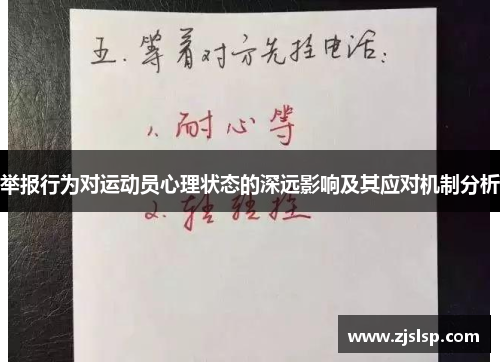 五.等着对方先挂电话:
1.耐心等
举报行为对运动员心理状态的深远影响及其应对机制分析
2.轻轻挂
www.zjslsp.com